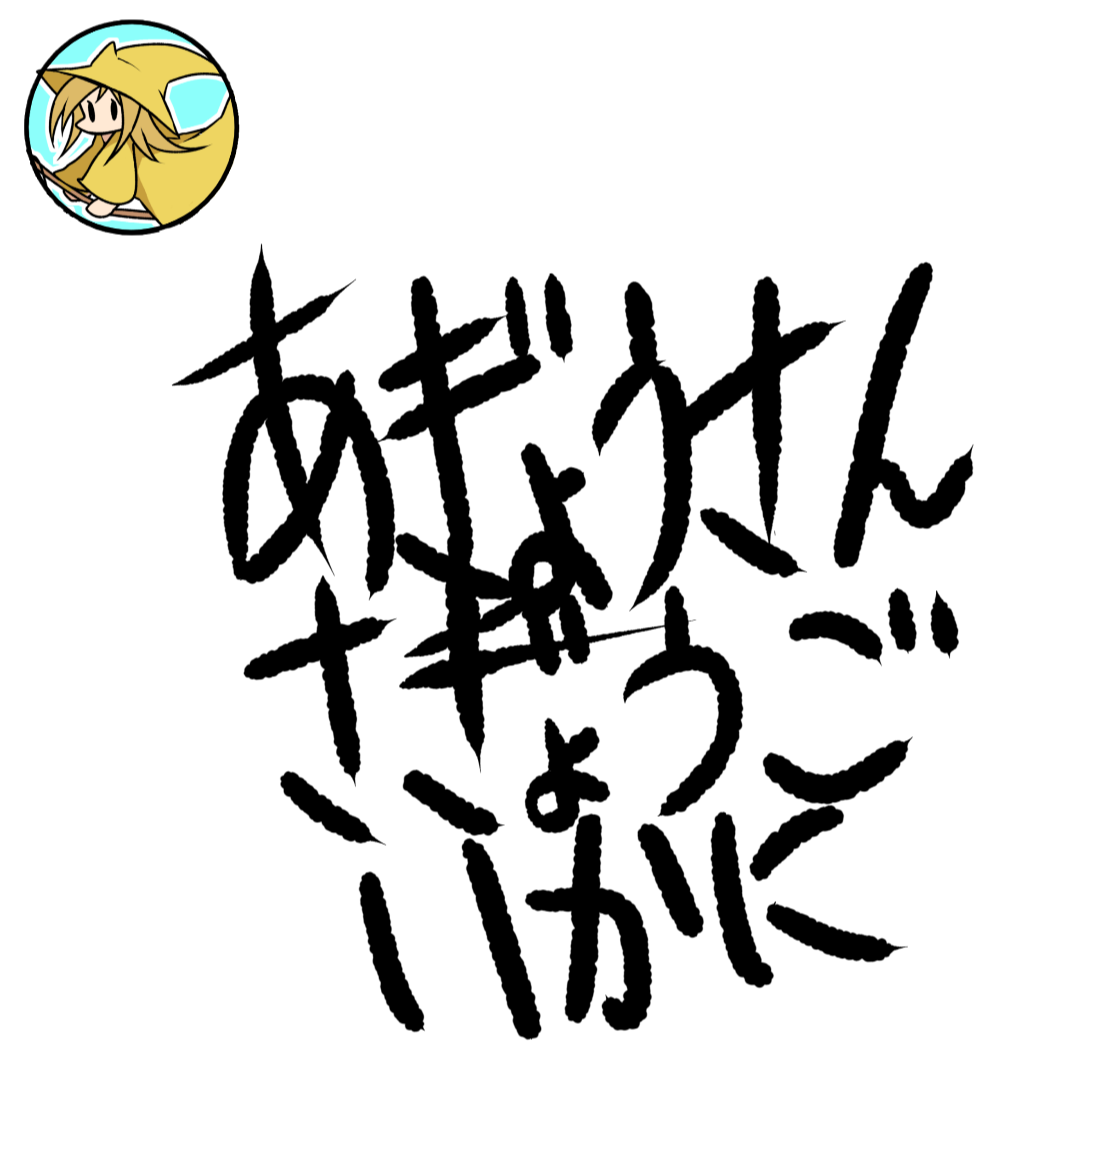 あぎょうさん
さぎょうご
いかに